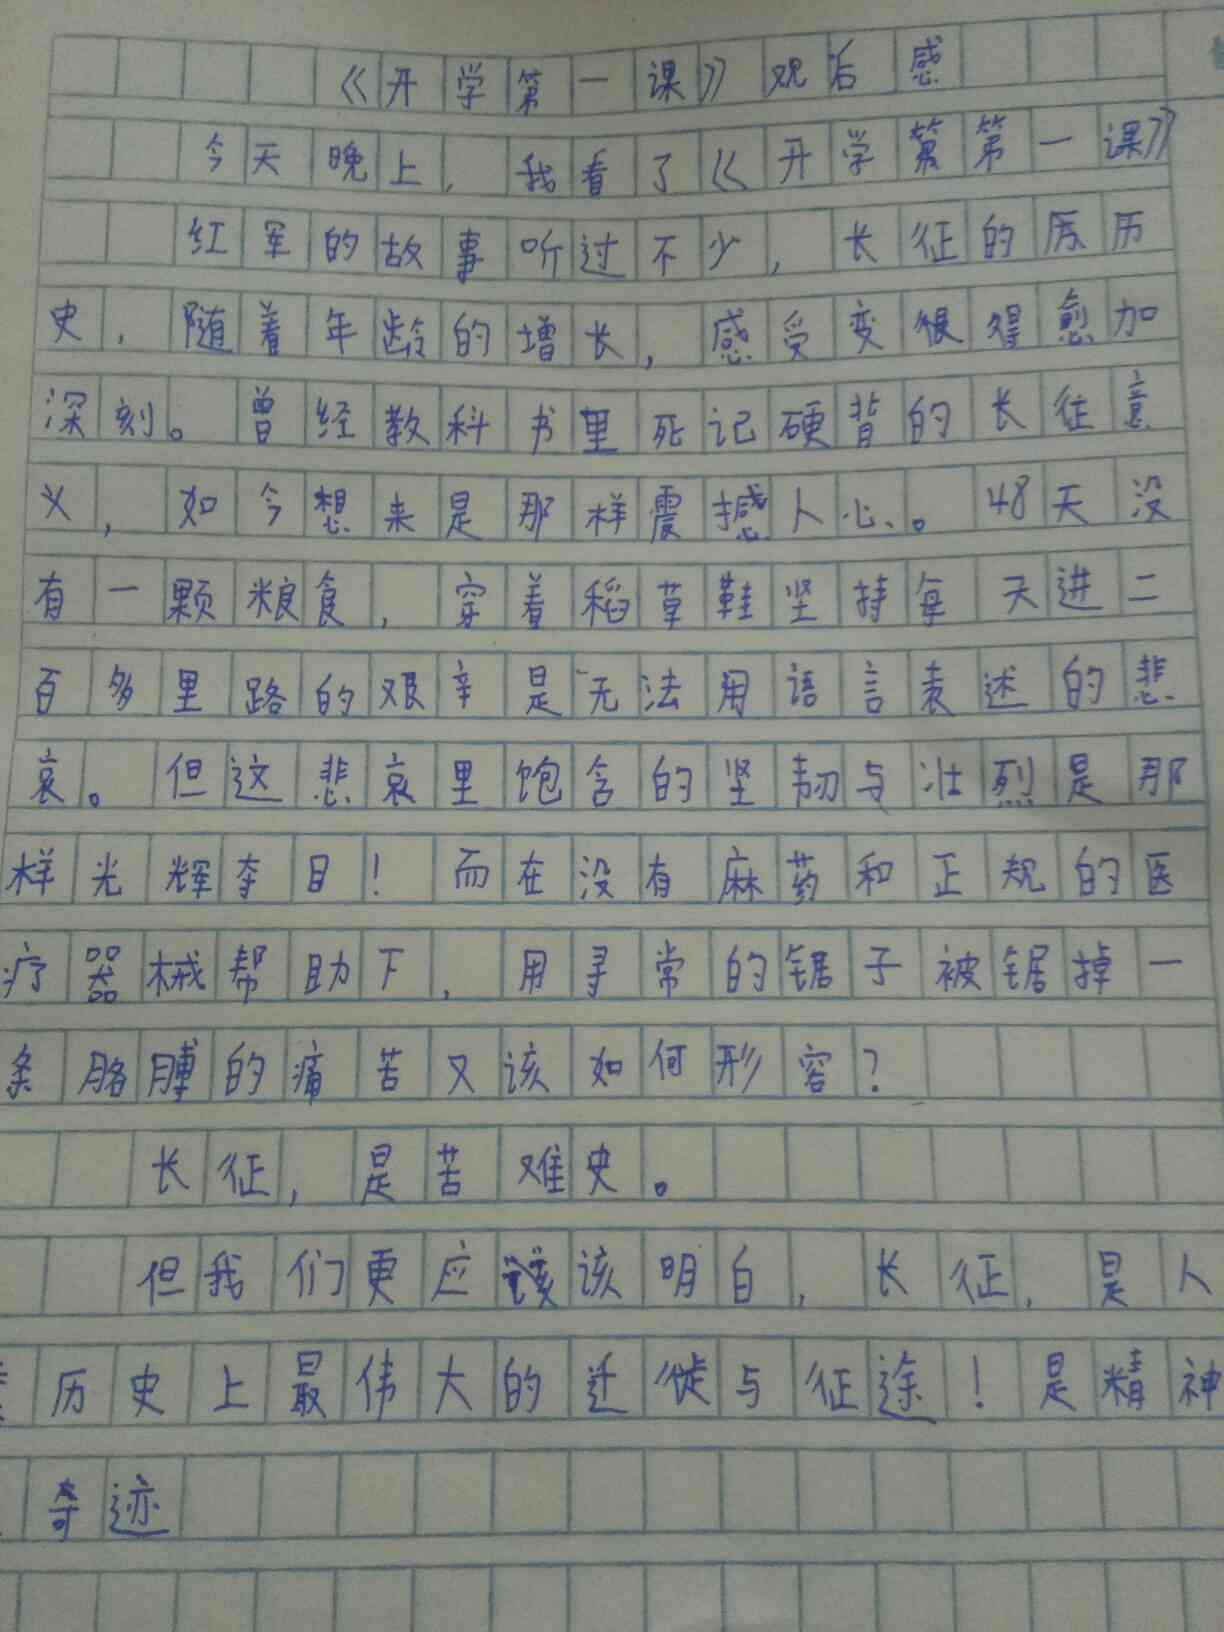 《开学第一课》观后感
今天晚上，我看了《开学第一课》
红军的故事听过不少，长征的历
史，随着年龄的增长，感受变得愈加
深刻。曾经教科书里死记硬背的长征意
义，如今想来是那样震撼人心。48天没
有一颗粮食，穿着稻草鞋坚持每天进二
百多里路的艰辛是无法用语言表述的悲
哀。但这悲哀里饱含的坚韧与壮烈是那
样光辉夺目！而在没有麻药和正规的医
疗器械帮助下，用寻常的锯子被锯掉一
条胳膊的痛苦又该如何形容？
长征，是苦难史。
但我们更应该明白，长征，是人
历史上最伟大的迁徙与征途！是精神
奇迹